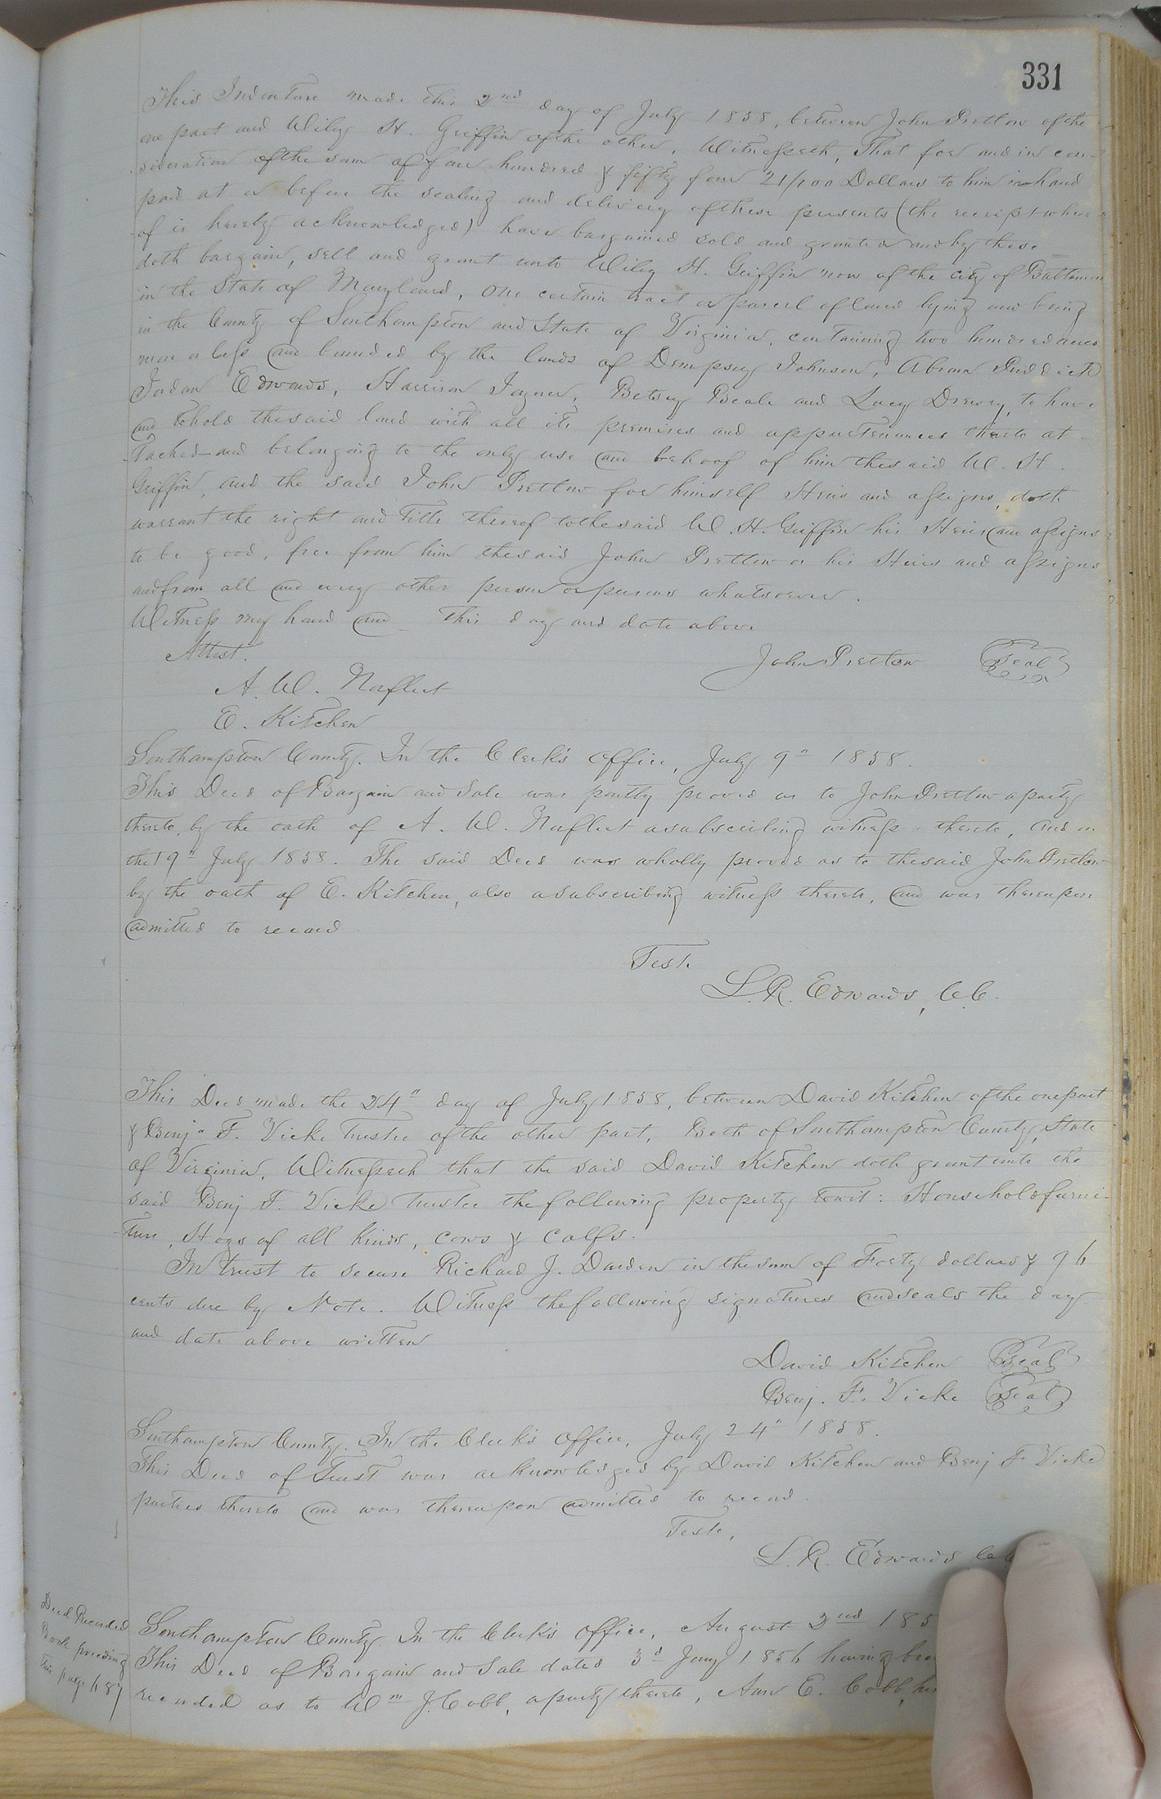 331
This Indenture made this 2nd day of July 1858, between John Pretlow of the
one part and Wiley H. Griffin of the other, Witnesseth, That for and in con-
sideration of the sum of four hundred & fifty four 21/100 Dollars to him in hand
paid at or before the sealing and delivery of these presents (the receipt where-
of is hereby acknowledged) have bargained sold and granted and by these
doth bargain, sell and grant unto Wiley H. Griffin now of the city of Baltimore
in the State of Maryland, One certain tract or parcel of land lying and being
in the County of Southampton and State of Virginia, containing two hundred acres
more or less and bounded by the lands of Dempsey Johnson, Abram
Jordan Edwards, Harrison Joyner, Betsey Beale and Lucy Drewry, to have
and to hold the said land with all its premises and appurtenances thereto at-
tached and belonging to the only use and behoof of him the said W. H.
Griffin, and the said John Pretlow for himself Heirs and assigns, doth
warrant the right and title thereof to the said W. H. Griffin his Heirs and assigns
to be good, free from him the said John Pretlow or his Heirs and assigns
and from all and every other person or persons whatsoever.
Witness my hand and this day and date above
Attest. John Pretlow Seal
A. W. Norfleet
E. Kitchen
Southampton County. In the Clerk's Office, July 9" 1858.
This Deed of Bargain and Sale was partly proved as to John Pretlow a party
thereto, by the oath of A. W. Norfleet a subscribing witness thereto, And on
the 19" July 1858. The said Deed was wholly proved as to the said John Pretlow
by the oath of E. Kitchen, also a subscribing witness thereto, and was thereupon
admitted to record
Teste
L. R. Edwards, C.C.
This Deed made the 24" day of July 1858, between David Kitchen of the one part
& Benja F. Vicke trustee of the other part, Both of Southampton County, State
of Virginia, Witnesseth that the said David Kitchen doth grant unto the
said Benj F. Vicke trustee the following property to wit: Household furni-
ture, Hogs of all kinds, cows & calfs.
In trust to secure Richard J. Darden in the sum of Forty dollars & 96
cents due by Note. Witness the following signatures and seals the day
and date above written
David Kitchen Seal
Benj. F. Vicke Seal
Southampton County. In the Clerk's Office, July 24" 1858.
This Deed of Trust was acknowledged by David Kitchen and Benj F. Vicke
parties thereto and was thereupon admitted to record.
Teste,
L. R. Edwards
Deed Recorded
Book preceding
this page 687
Southampton County. In the Clerk's Office, August 2nd 185
This Deed of Bargain and Sale dated 3d Jany 1856 having
recorded as to Wm J. Cobb, a party thereto, Ann E. Cobb,